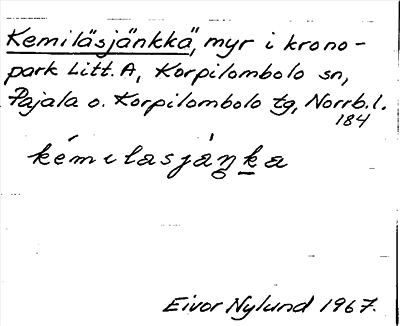 Kemiläsjänkkä, myr i krono-
park Litt. A, Korpilombolo sn,
Pajala o. Korpilombolo tg, Norrb. l.
184
kémılasjáŋ̥ḵa
Eivor Nylund 1967.